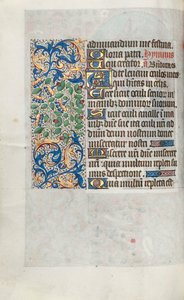 adiuuandum me festina
Gloria patri. Hymnus
Veni creator.
Ad te leuaui oculos meos
qui habitas in celis.
Ecce sicut oculi seruorum in
manibus dominorum suorum.
Sicut oculi ancille in
ad dnm deum nostrum donec
misereatur nostri
Miserere nri dne miserere
nri quia multum repleti su
mus despectione
Quia multum repleta est